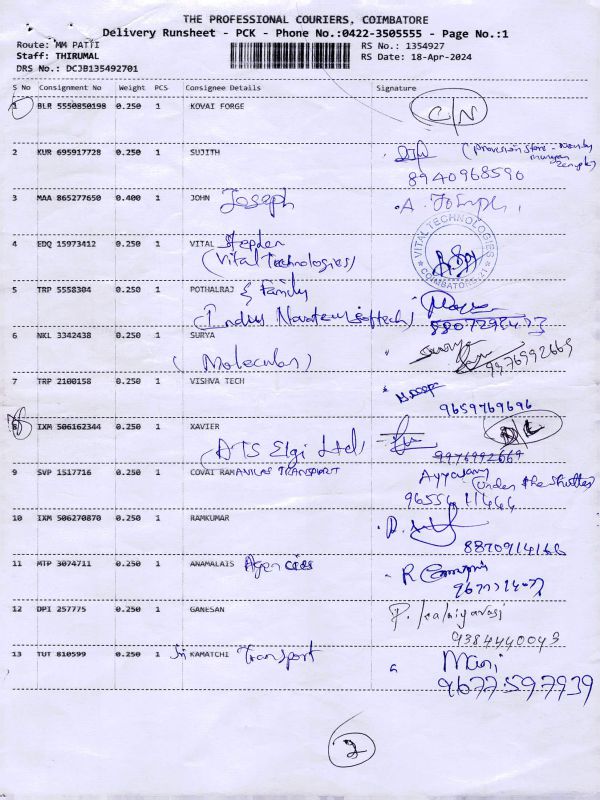 THE PROFESSIONAL COURIERS, COIMBATORE
Delivery Runsheet - PCK - Phone No.:0422-3505555 - Page No.:1
Route: MM PATTI
RS No.: 1354927
Staff: THIRUMAL
RS Date: 18-Apr-2024
DRS No.: DCJB135492701
S No Consignment No Weight PCS Consignee Details Signature
1 BLR 5550850198 0.250 1 KOVAI FORGE C/N
2 KUR 695917728 0.250 1 SUJITH (Provision Store - Nearby
murugan
temple)
8940968590
3 MAA 865277650 0.400 1 JOHN Joseph A. Joseph
4 EDQ 15973412 0.250 1 VITAL Stephen
(Vital Technologies)
VITAL TECHNOLOGIES
COIMBATORE
5 TRP 5558304 0.250 1 POTHALRAJ & Family
(Indus Novateur Softech)
6 NKL 3342438 0.250 1 SURYA Surya
(Molecular) 9976992669
7 TRP 2100158 0.250 1 VISHVA TECH
9659769696
8 IXM 506162344 0.250 1 XAVIER D/L
(ATS Elgi Ltd) 9976992669
9 SVP 1517716 0.250 1 COVAI RAMANILAS TRANSPORT Ayyasamy
(Under the Shutter)
10 IXM 506270870 0.250 1 RAMKUMAR
8870914168
11 MTP 3074711 0.250 1 ANAMALAIS Agencies
12 DPI 257775 0.250 1 GANESAN
9384440043
13 TUT 810599 0.250 1 Sri KAMATCHI Transport Mani
9677597939
2